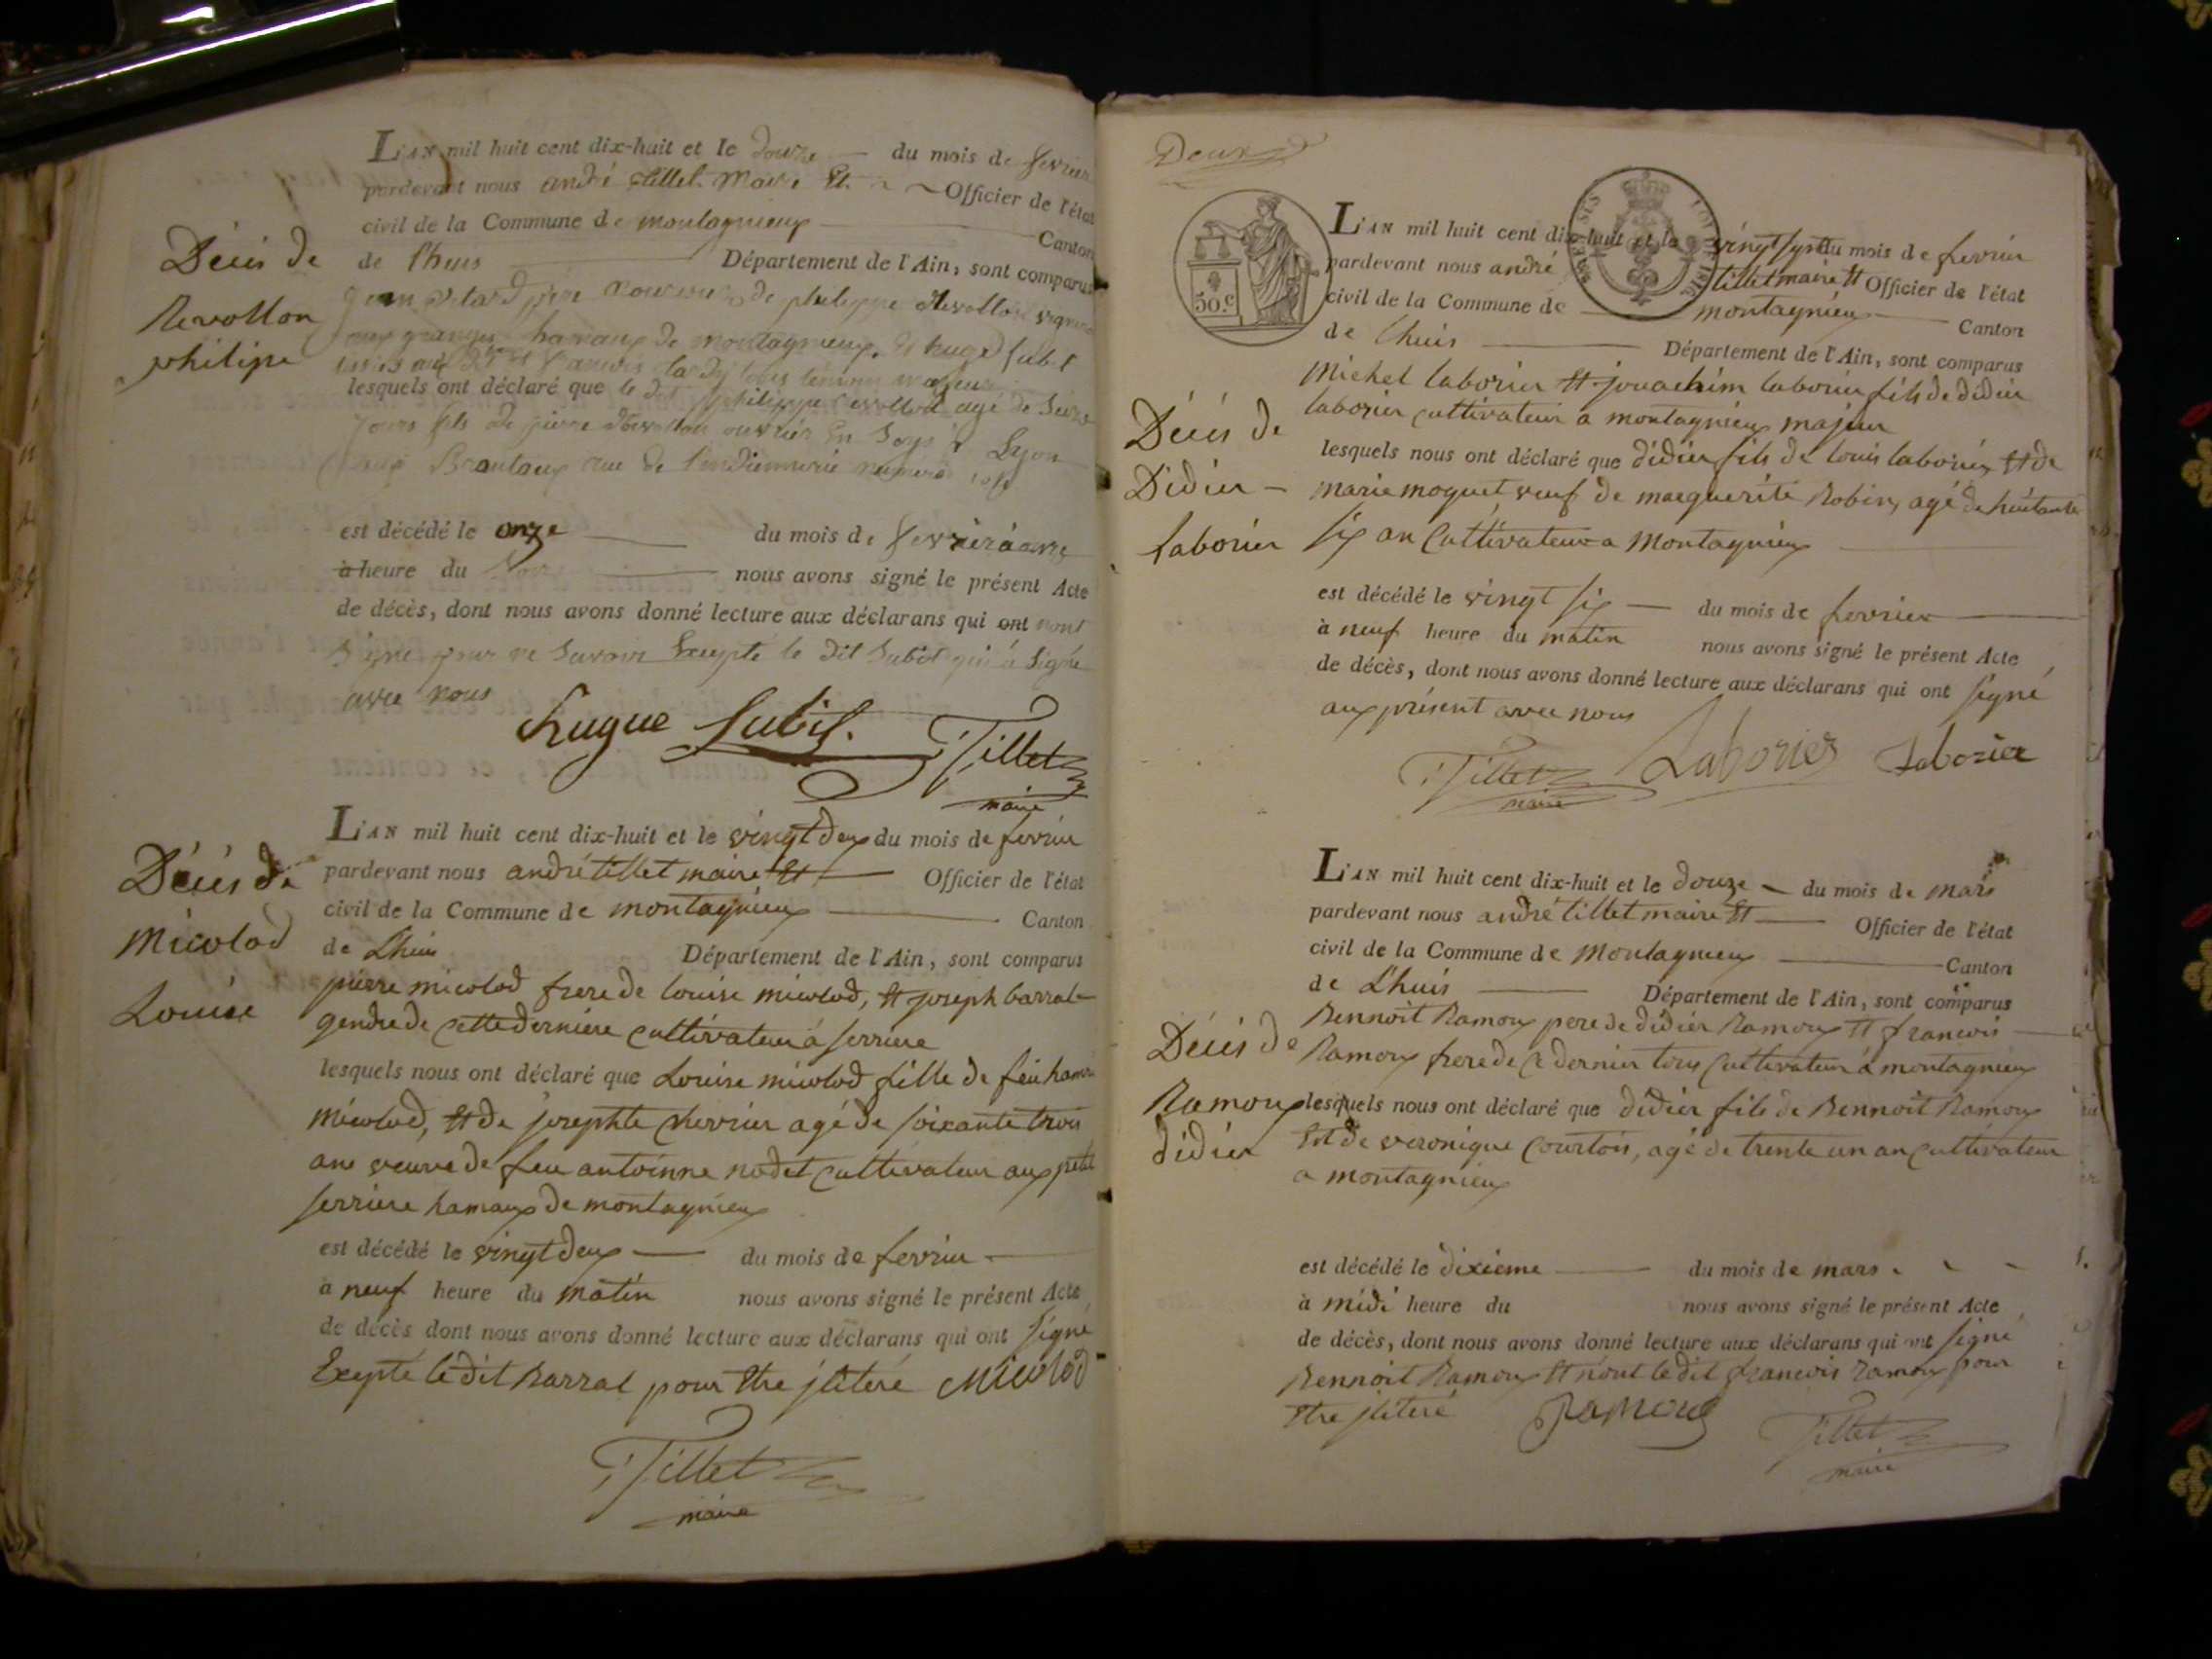 L'AN mil huit cent dix-huit et le douze du mois de fevrier
pardevant nous andré tillet Maire Et Officier de l'état
civil de la Commune de montagnieux Canton
de Lhuis Département de l'Ain, sont comparus
Décés de
Revollon
philipe
de philippe Revollon
hamaux de montagnieux
lesquels ont déclaré que le dit philippe revollon agé de
jours fils de pierre Revollon ouvrier En Soye à Lyon
aux Brautaux rue de numero
est décédé le onze du mois de fevrier à onze
à heure du nous avons signé le présent Acte
de décès, dont nous avons donné lecture aux déclarans qui ont nont
Signé pour ne Savoir Excepté le dit Subit qui à Signé
avec nous
hugue Subit. Tillet
maire
L'AN mil huit cent dix-huit et le vingt deux du mois de fevrier
pardevant nous andré tillet maire Et Officier de l'état
civil de la Commune de montagnieux Canton
de Lhuis Département de l'Ain, sont comparus
Décés de
Micolod
Louise
pierre micolod frere de louise micolod, Et joseph barral
gendre de cette derniere cultivateur à serriere
lesquels nous ont déclaré que Louise micolod fille de feu
micolod, Et de josephte chevrier agé de soixante trois
ans veuve de feu antoinne nodet cultivateur aux petit
serriere hamaux de montagnieux
est décédé le vingt deux du mois de fevrier
à neuf heure du matin nous avons signé le présent Acte
de décès dont nous avons donné lecture aux déclarans qui ont signé
Excepté le dit Barral pour Etre jliteré Micolod
Tillet
maire
Deux
50.c
L'AN mil huit cent dix-huit et le vingt sept du mois de fevrier
pardevant nous andré tillet maire Et Officier de l'état
civil de la Commune de montagnieux Canton
de Lhuis Département de l'Ain, sont comparus
Décés de
Didier
Laborier
Michel laborier Et jouachim laborier fils de didier
laborier cultivateur a montagnieux majeur
lesquels nous ont déclaré que didier fils de louis laborier, Et de
marie moquet, veuf de marguerite Robin, agé de huitante
six an Cultivateur a Montagnieux
est décédé le vingt six du mois de fevrier
à neuf heure du matin nous avons signé le présent Acte
de décès, dont nous avons donné lecture aux déclarans qui ont signé
aux présent avec nous
Tillet Laborier Laborier
maire
L'AN mil huit cent dix-huit et le douze du mois de mars
pardevant nous andré tillet maire Et Officier de l'état
civil de la Commune de Montagnieux Canton
de Lhuis Département de l'Ain, sont comparus
Décés de
Ramoux
didier
Bennoit Ramoux pere de didier Ramoux Et francois
Ramoux frere de ce dernier tous cultivateur à montagnieux
lesquels nous ont déclaré que didier fils de Bennoit Ramoux
Et de veronique Courtois, agé de trente un an cultivateur
a montagnieux
est décédé le dixieme du mois de mars
à midi heure du nous avons signé le présent Acte
de décès, dont nous avons donné lecture aux déclarans qui ont signé
Bennoit Ramoux Et nont le dit francois ramoux pour
Etre jliteré Ramoux Tillet
maire